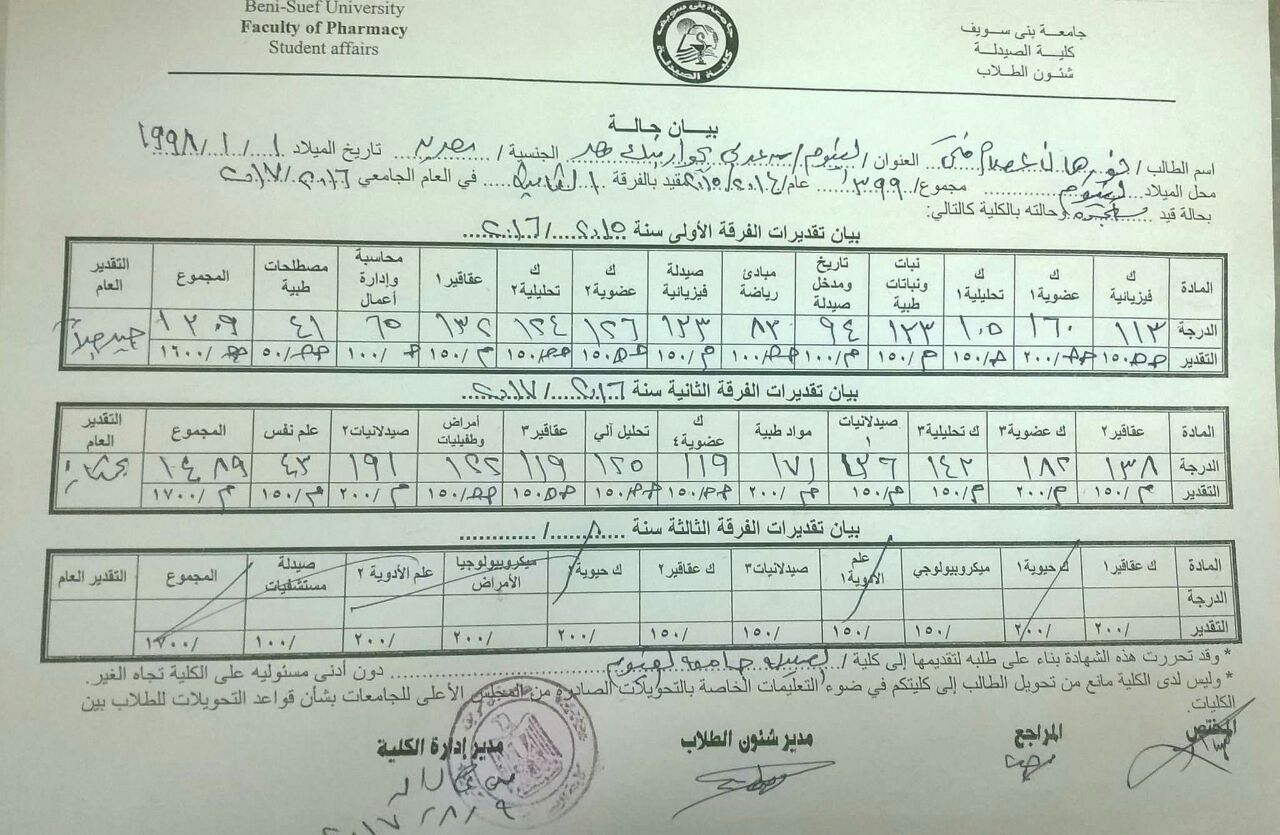 Beni-Suef University
Faculty of Pharmacy
Student affairs
جامعة بنى سويف
كلية الصيدلة
شئون الطلاب
جامعة بنى سويف
كلية الصيدلة
بيان حالة
اسم الطالب / عصام العنوان / الفيوم / الجنسية / مصرية تاريخ الميلاد ١ / ١ / ١٩٩٨
محل الميلاد الفيوم مجموع / ٣٩٩ عام / ٢٠١٤ / ٢٠١٥ مقيد بالفرقة الثانية في العام الجامعي ٢٠١٦ / ٢٠١٧
بحالة قيد مستجدة وحالته بالكلية كالتالي:
بيان تقديرات الفرقة الأولى سنة ٢٠١٥ / ٢٠١٦
المادة ك فيزيائية ك عضوية١ ك تحليلية١ نبات ونباتات طبية تاريخ ومدخل صيدلة مبادئ رياضة صيدلة فيزيائية ك عضوية٢ ك تحليلية٢ عقاقير١ محاسبة وإدارة أعمال مصطلحات طبية المجموع التقدير العام
الدرجة ١١٣ ١٦٠ ١٠٥ ١٢٣ ٩٤ ٨٣ ١٢٣ ١٢٦ ١٢٤ ١٣٢ ٦٥ ٤١ ١٢٠٩ جيد جداً
التقدير ١٥٠/ ٢٠٠/ ١٥٠/ ١٥٠/م ١٠٠/م ١٠٠/ ١٥٠/م ١٥٠/ ١٥٠/ ١٥٠/م ١٠٠/ ٥٠/ ١٦٠٠/
بيان تقديرات الفرقة الثانية سنة ٢٠١٦ / ٢٠١٧
المادة عقاقير٢ ك عضوية٣ ك تحليلية٣ صيدلانيات ١ مواد طبية ك عضوية٤ تحليل آلي عقاقير٣ أمراض وطفيليات صيدلانيات٢ علم نفس المجموع التقدير العام
الدرجة ١٣٨ ١٨٢ ١٤٢ ١٣٦ ١٧١ ١١٩ ١٢٥ ١١٩ ١٢٢ ١٩١ ٤٣ ١٤٨٩ ممتاز
التقدير ١٥٠/م ٢٠٠/م ١٥٠/م ١٥٠/م ٢٠٠/م ١٥٠/ ١٥٠/ ١٥٠/ ١٥٠/ ٢٠٠/م ١٥٠/م ١٧٠٠/م
بيان تقديرات الفرقة الثالثة سنة /
المادة ك عقاقير١ ك حيوية١ ميكروبيولوجي علم الأدوية١ صيدلانيات٣ ك عقاقير٢ ك حيوية٢ ميكروبيولوجيا الأمراض علم الأدوية ٢ صيدلة مستشفيات المجموع التقدير العام
الدرجة
التقدير ٢٠٠/ ٢٠٠/ ١٥٠/ ١٥٠/ ١٥٠/ ١٥٠/ ٢٠٠/ ٢٠٠/ ٢٠٠/ ١٠٠/ ١٧٠٠/
* وقد تحررت هذه الشهادة بناء على طلبه لتقديمها إلى كلية / صيدلة جامعة الفيوم دون أدنى مسئوليه على الكلية تجاه الغير.
* وليس لدى الكلية مانع من تحويل الطالب إلى كليتكم في ضوء التعليمات الخاصة بالتحويلات الصادرة من المجلس الأعلى للجامعات بشأن قواعد التحويلات للطلاب بين
الكليات.
المختص المراجع مدير شئون الطلاب مدير إدارة الكلية
٢٠١٧/٨/٩